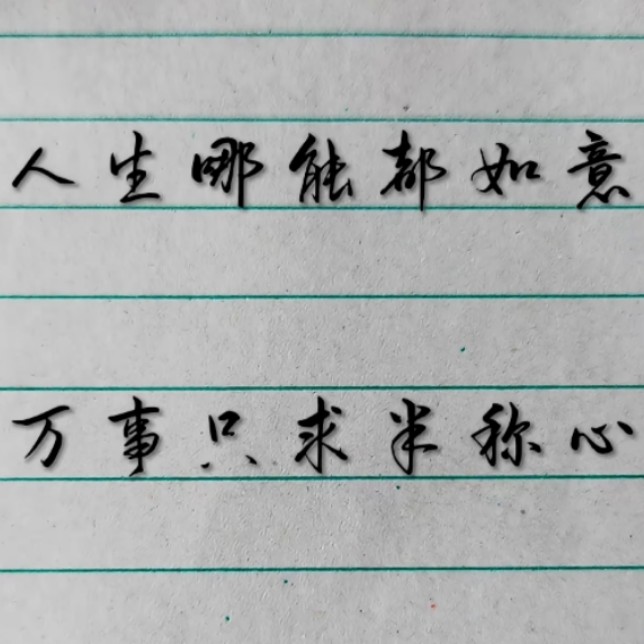 人生哪能都如意
万事只求半称心